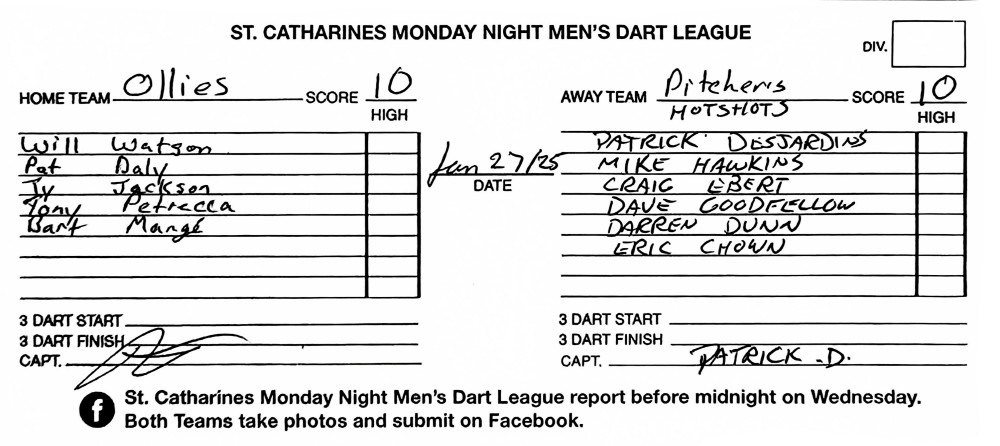 ST. CATHARINES MONDAY NIGHT MEN'S DART LEAGUE
DIV.
HOME TEAM Ollies SCORE 10
HIGH
Will Watson
Pat Daly
Ty Jackson
Tony Petrecca
Bart Mangé
3 DART START
3 DART FINISH
CAPT.
Jan 27/25
DATE
AWAY TEAM Pitchers SCORE 10
HOTSHOTS
HIGH
PATRICK DESJARDINS
MIKE HAWKINS
CRAIG EBERT
DAVE GOODFELLOW
DARREN DUNN
ERIC CHOWN
3 DART START
3 DART FINISH
CAPT. PATRICK .D.
f St. Catharines Monday Night Men's Dart League report before midnight on Wednesday.
Both Teams take photos and submit on Facebook.